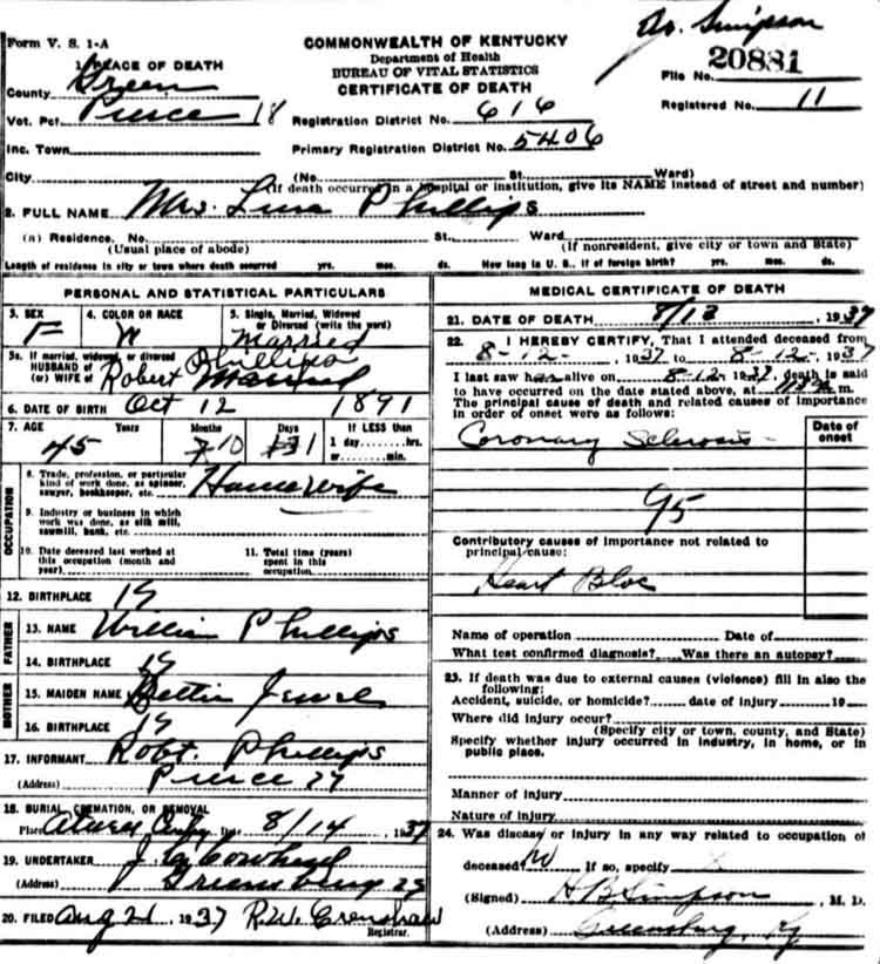 Dr. Simpson
Form V. S. 1-A
COMMONWEALTH OF KENTUCKY
Department of Health
BUREAU OF VITAL STATISTICS
CERTIFICATE OF DEATH
File No. 20881
Registered No. 11
1. PLACE OF DEATH
County Green
Vot. Pct. Pierce 18
Registration District No. 616
Inc. Town
Primary Registration District No. 5406
City (No. St. Ward)
(If death occurred in a hospital or institution, give its NAME instead of street and number)
2. FULL NAME Mrs. Phillips
(a) Residence. No. St., Ward
(Usual place of abode) (If nonresident, give city or town and State)
Length of residence in city or town where death occurred yrs. mos. ds. How long in U. S., if of foreign birth? yrs. mos. ds.
PERSONAL AND STATISTICAL PARTICULARS
3. SEX F
4. COLOR OR RACE W
5. Single, Married, Widowed or Divorced (write the word) Married
5a. If married, widowed, or divorced
HUSBAND of
(or) WIFE of Robert Phillips Married
6. DATE OF BIRTH Oct 12 1891
7. AGE Years Months Days If LESS than
45 10 1 1 day........hrs.
or........min.
OCCUPATION
8. Trade, profession, or particular kind of work done, as spinner, sawyer, bookkeeper, etc. Housewife
9. Industry or business in which work was done, as silk mill, sawmill, bank, etc.
10. Date deceased last worked at this occupation (month and year)
11. Total time (years) spent in this occupation
12. BIRTHPLACE Ky
FATHER
13. NAME William Phillips
14. BIRTHPLACE Ky
MOTHER
15. MAIDEN NAME
16. BIRTHPLACE Ky
17. INFORMANT Robt. Phillips
(Address) Pierce Ky
18. BURIAL, CREMATION, OR REMOVAL
Place Date 8/14, 1937
19. UNDERTAKER J.
(Address) Greensburg Ky
20. FILED Aug 21, 1937 R.W. Crenshaw
Registrar.
MEDICAL CERTIFICATE OF DEATH
21. DATE OF DEATH 8/12, 1937
22. I HEREBY CERTIFY, That I attended deceased from
8-12-, 1937 to 8-12-, 1937
I last saw her alive on 8-12, 1937, death is said
to have occurred on the date stated above, at m.
The principal cause of death and related causes of importance
in order of onset were as follows:
Date of onset
Coronary Sclerosis
95
Contributory causes of importance not related to
principal cause:
Heart Bloc
Name of operation Date of
What test confirmed diagnosis? Was there an autopsy?
23. If death was due to external causes (violence) fill in also the
following:
Accident, suicide, or homicide? date of injury 19
Where did injury occur?
(Specify city or town, county, and State)
Specify whether injury occurred in industry, in home, or in
public place.
Manner of injury
Nature of injury
24. Was disease or injury in any way related to occupation of
deceased? No If so, specify
(Signed) H B Simpson, M. D.
(Address) Greensburg, Ky